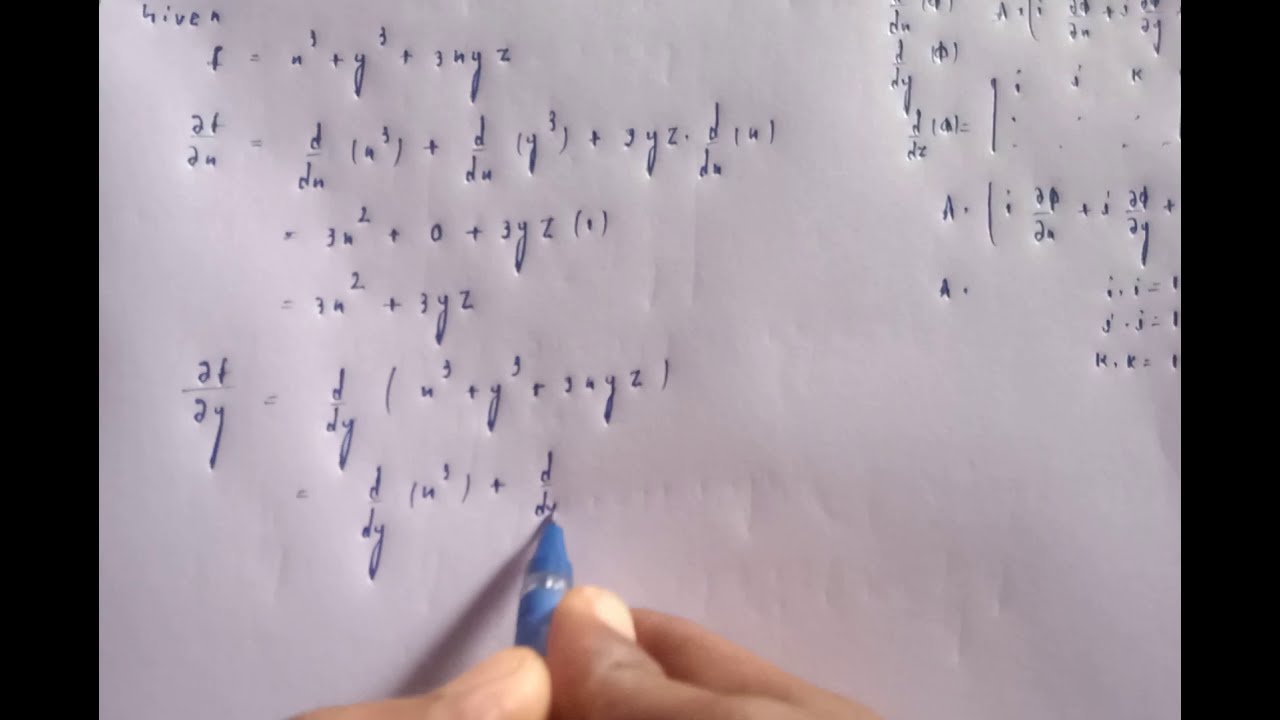 Given
f = x³ + y³ + 3xyz
∂f/∂x = d/dx (x³) + d/dx (y³) + 3yz · d/dx (x)
= 3x² + 0 + 3yz (1)
= 3x² + 3yz
∂f/∂y = d/dy ( x³ + y³ + 3xyz )
= d/dy (x³) + d/dy
d/dx (ϕ)
d/dy (ϕ)
d/dz (ϕ) =
∂ϕ/∂x + j ∂ϕ/∂y
i j K
A · ( i ∂ϕ/∂x + j ∂ϕ/∂y +
A ·
i · i = 1
j · j = 1
K · K = 1